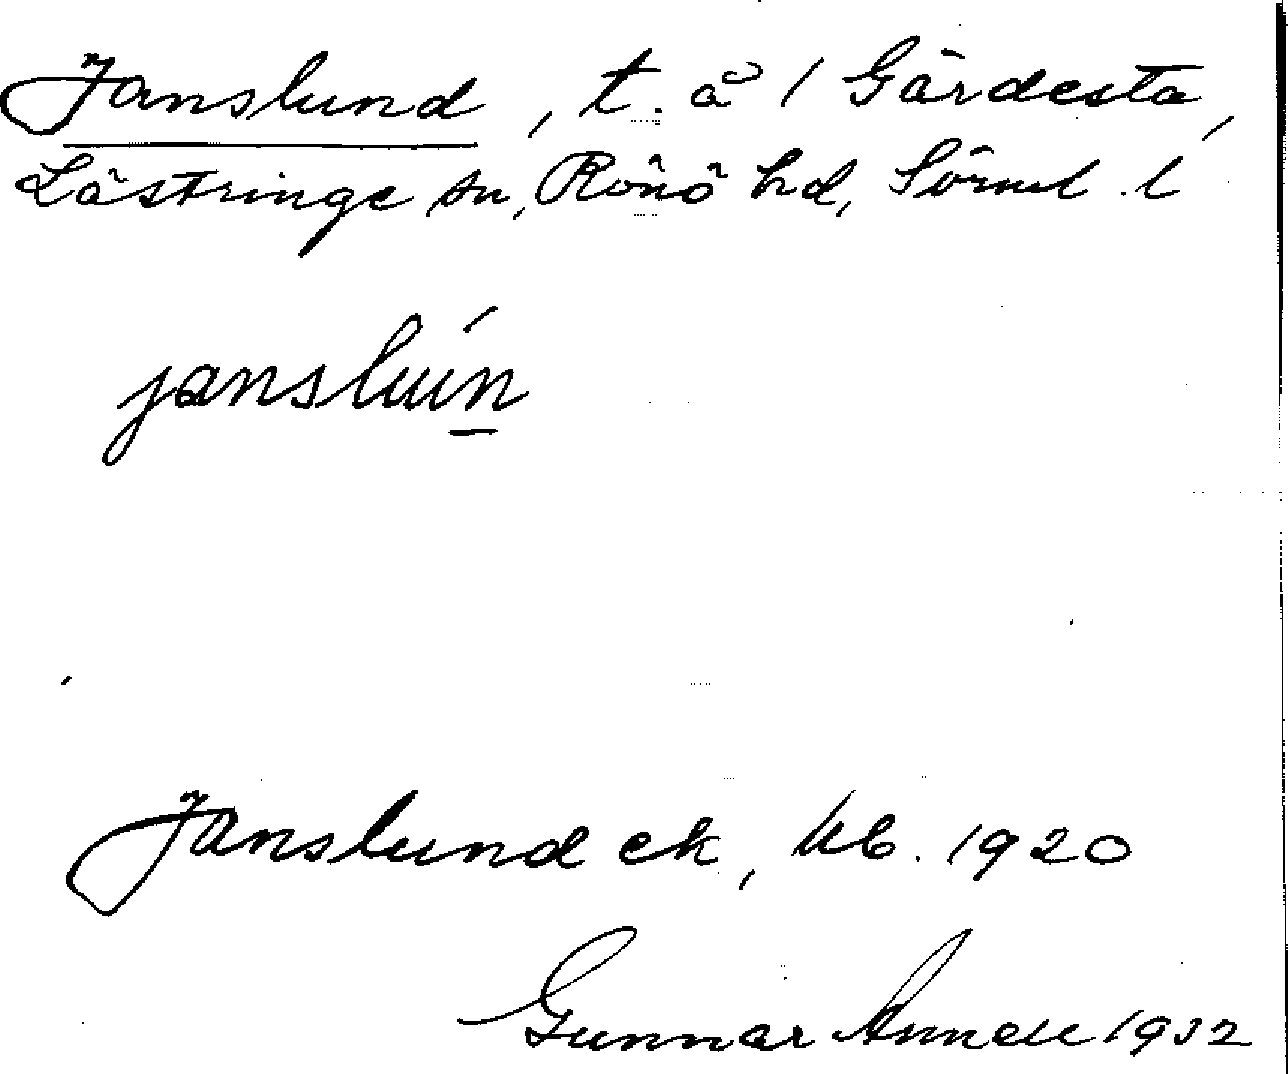 Janslund, t. å 1 Gärdesta,
Lästringe sn, Rönö hd, Sörml. l
jansluń
Janslund ek, kb. 1920
Gunnar Annell 1932